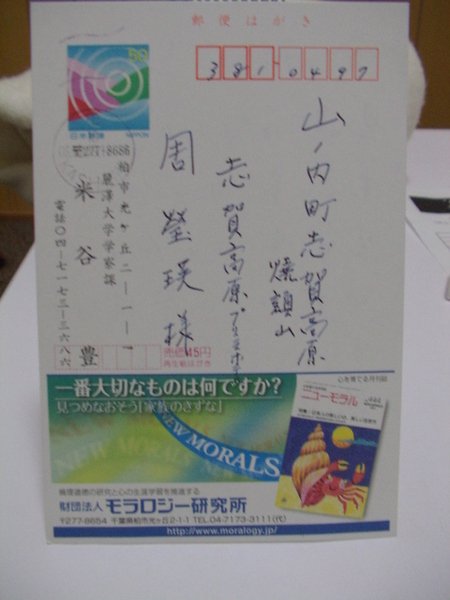 郵便はがき
50
日本郵便 NIPPON
381-0497
山ノ内町志賀高原
焼額山
志賀高原プリンスホテル
周瑩瑛様
〒277-8686
柏市光ヶ丘二-一-一
麗澤大学学寮課
米谷 豊
電話〇四-七一七三-三六八六
売価45円
再生紙はがき
一番大切なものは何ですか?
見つめなおそう「家族のきずな」
NEW MORALS
心を育てる月刊誌
ニューモラル
444
倫理道徳の研究と心の生涯学習を推進する
財団法人 モラロジー研究所
〒277-8654 千葉県柏市光ヶ丘2-1-1 TEL.04-7173-3111(代)
http://www.moralogy.jp/